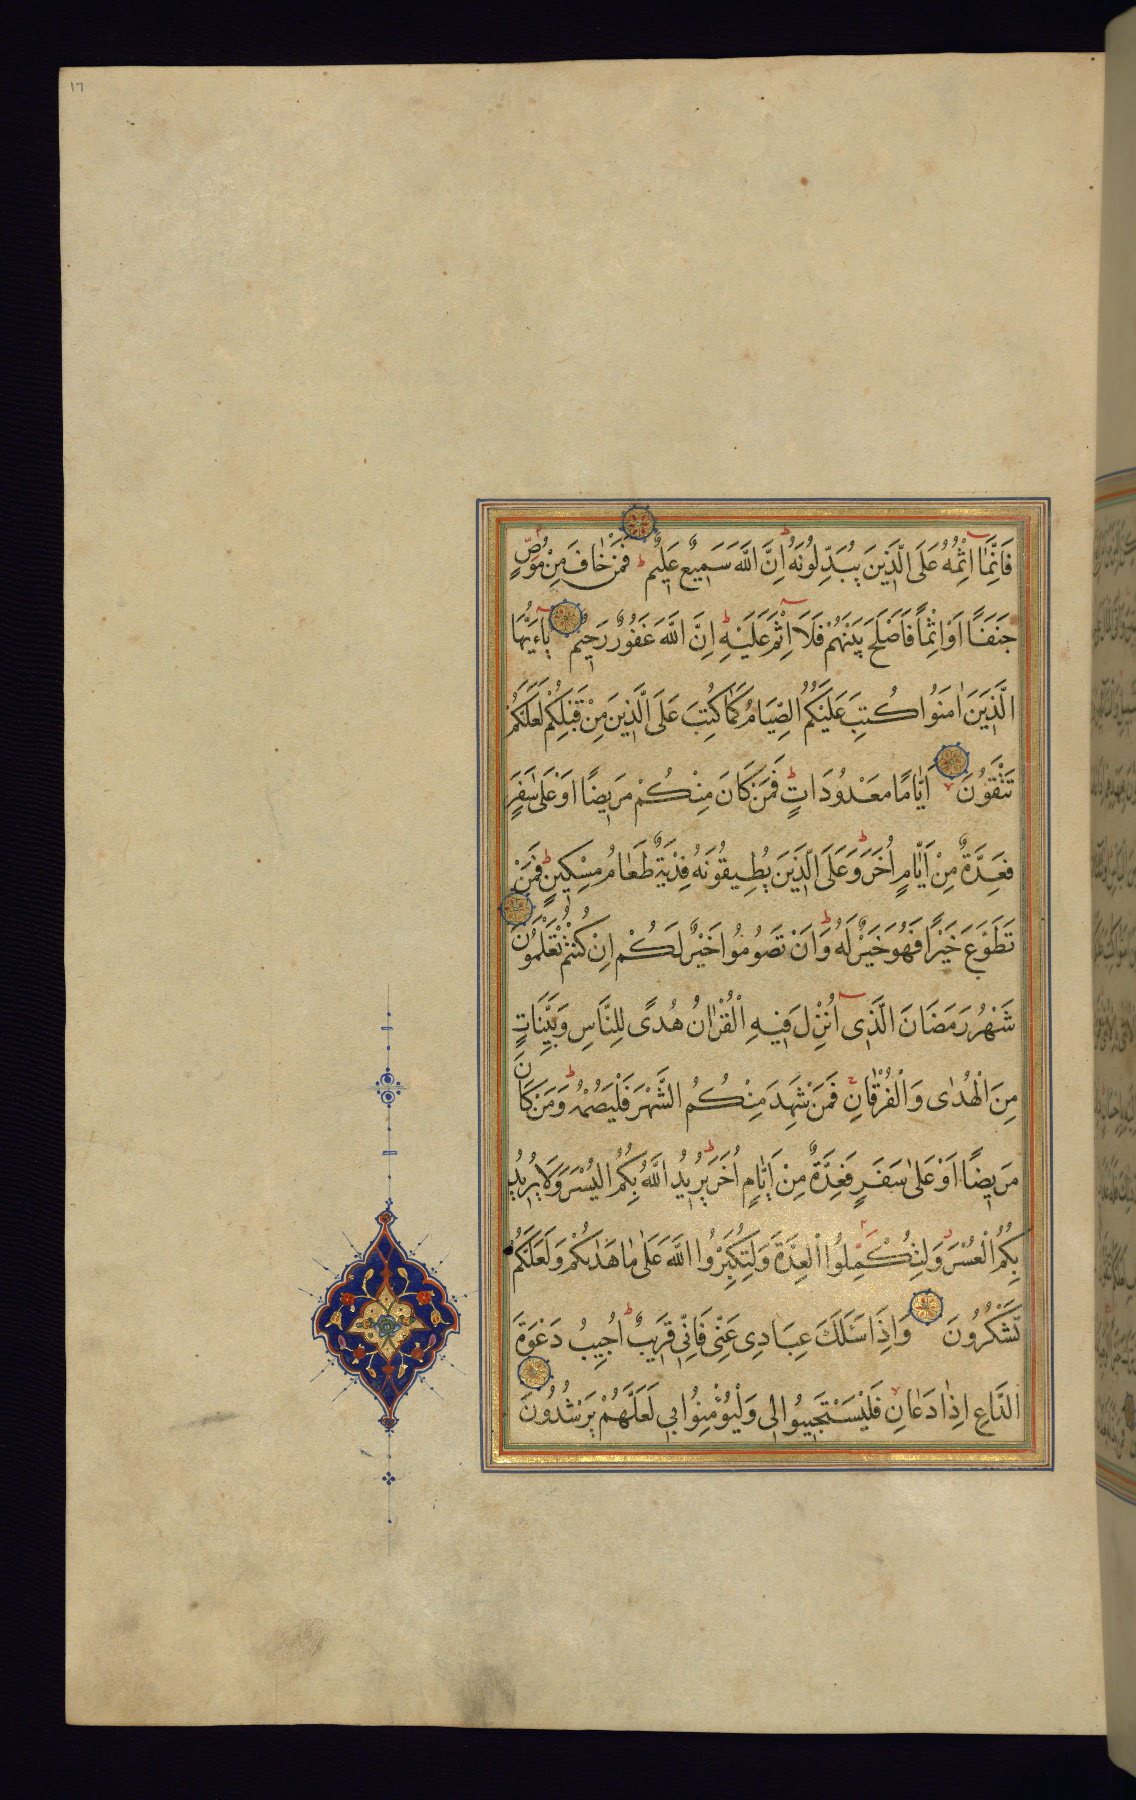 ١٦
فَاِنَّمَا اِثْمُهُ عَلَى الَّذِينَ يُبَدِّلُونَهُ اِنَّ اللَّهَ سَمِيعٌ عَلِيمٌ فَمَنْ خَافَ مِنْ مُوصٍ
جَنَفًا اَوْ اِثْمًا فَاَصْلَحَ بَيْنَهُمْ فَلَا اِثْمَ عَلَيْهِ اِنَّ اللَّهَ غَفُورٌ رَحِيمٌ يَاءَيُّهَا
الَّذِينَ اٰمَنُوا كُتِبَ عَلَيْكُمُ الصِّيَامُ كَمَا كُتِبَ عَلَى الَّذِينَ مِنْ قَبْلِكُمْ لَعَلَّكُمْ
تَتَّقُونَ اَيَّامًا مَعْدُودَاتٍ فَمَنْ كَانَ مِنْكُمْ مَرِيضًا اَوْ عَلٰى سَفَرٍ
فَعِدَّةٌ مِنْ اَيَّامٍ اُخَرَ وَعَلَى الَّذِينَ يُطِيقُونَهُ فِدْيَةٌ طَعَامُ مِسْكِينٍ فَمَنْ
تَطَوَّعَ خَيْرًا فَهُوَ خَيْرٌ لَهُ وَاَنْ تَصُومُوا خَيْرٌ لَكُمْ اِنْ كُنْتُمْ تَعْلَمُونَ
شَهْرُ رَمَضَانَ الَّذِى اُنْزِلَ فِيهِ الْقُرْاٰنُ هُدًى لِلنَّاسِ وَبَيِّنَاتٍ
مِنَ الْهُدٰى وَالْفُرْقَانِ فَمَنْ شَهِدَ مِنْكُمُ الشَّهْرَ فَلْيَصُمْهُ وَمَنْ كَانَ
مَرِيضًا اَوْ عَلٰى سَفَرٍ فَعِدَّةٌ مِنْ اَيَّامٍ اُخَرَ يُرِيدُ اللَّهُ بِكُمُ الْيُسْرَ وَلَا يُرِيدُ
بِكُمُ الْعُسْرَ وَلِتُكْمِلُوا الْعِدَّةَ وَلِتُكَبِّرُوا اللَّهَ عَلٰى مَا هَدٰىكُمْ وَلَعَلَّكُمْ
تَشْكُرُونَ وَاِذَا سَاَلَكَ عِبَادِى عَنِّى فَاِنِّى قَرِيبٌ اُجِيبُ دَعْوَةَ
الدَّاعِ اِذَا دَعَانِ فَلْيَسْتَجِيبُوا لِى وَلْيُؤْمِنُوا بِى لَعَلَّهُمْ يَرْشُدُونَ